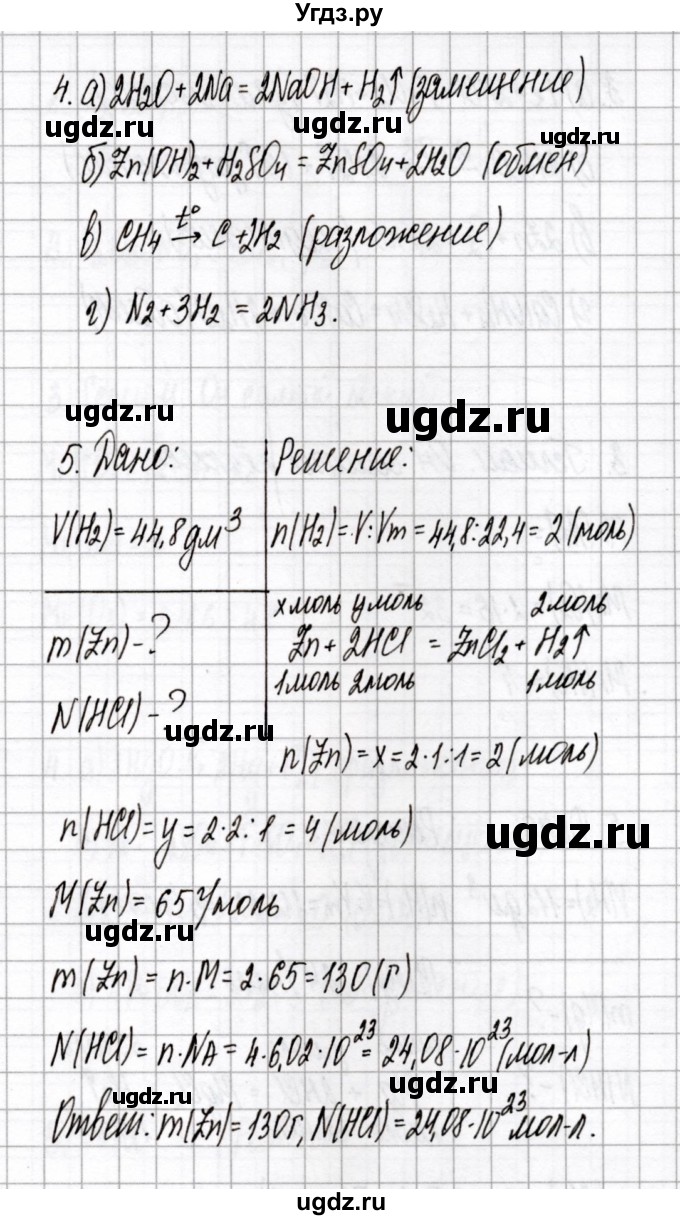 Угдз.ру
4. а) 2H2O + 2Na = 2NaOH + H2↑ (замещение)
ugdz.ru ugdz.ru ugdz.ru
б) Zn(OH)2 + H2SO4 = ZnSO4 + 2H2O (обмен)
в) CH4 t°→ C + 2H2 (разложение)
г) N2 + 3H2 = 2NH3.
ugdz.ru ugdz.ru
5. Дано: Решение:
V(H2) = 44,8 дм³ n(H2) = V : Vm = 44,8 : 22,4 = 2 (моль)
x моль y моль 2 моль
m(Zn) - ? Zn + 2HCl = ZnCl2 + H2↑
1 моль 2 моль 1 моль
N(HCl) - ?
ugdz.ru
n(Zn) = x = 2·1:1 = 2 (моль)
n(HCl) = y = 2·2:1 = 4 (моль)
ugdz.ru
M(Zn) = 65 г/моль
ugdz.ru
m(Zn) = n·M = 2·65 = 130 (г)
N(HCl) = n·NA = 4·6,02·10²³ = 24,08·10²³ (мол-л)
ugdz.ru
Ответ: m(Zn) = 130 г, N(HCl) = 24,08·10²³ мол-л.
ugdz.ru
ugdz.ru